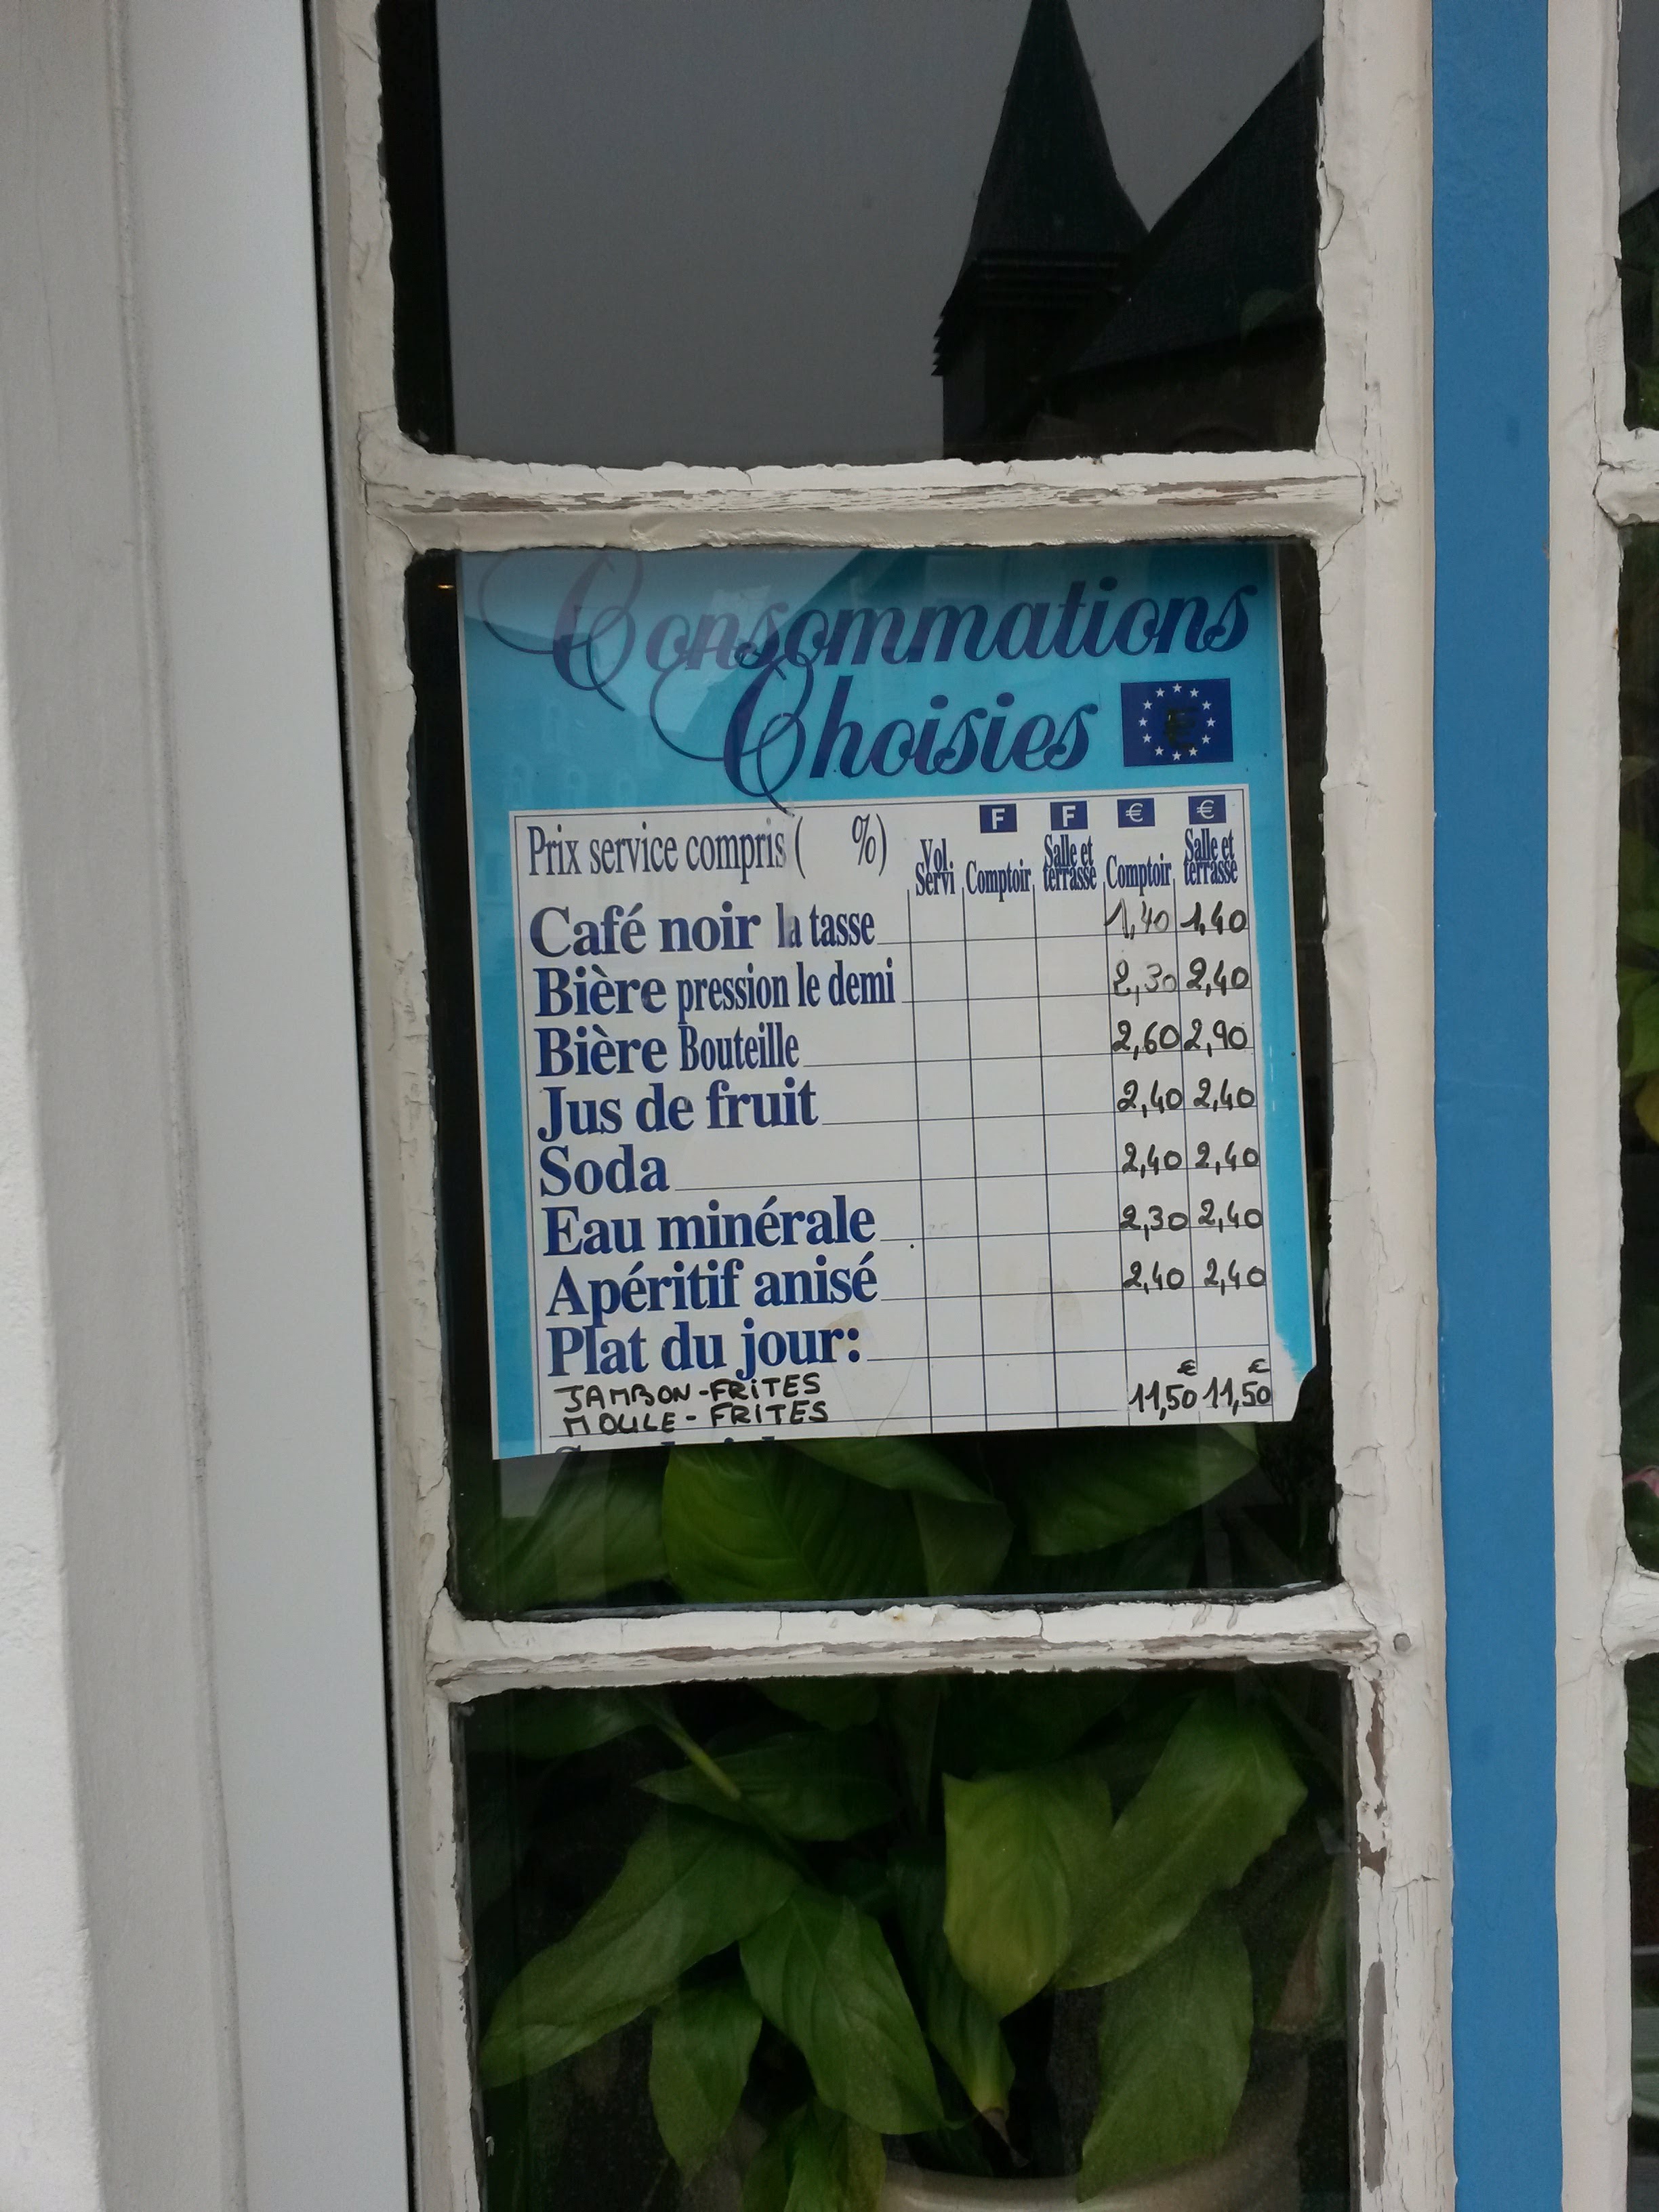 Consommations
Choisies
€
F F € €
Prix service compris ( %) Vol. Servi Comptoir Salle et terrasse Comptoir Salle et terrasse
Café noir la tasse 1,40 1,40
Bière pression le demi 2,30 2,40
Bière Bouteille 2,60 2,90
Jus de fruit 2,40 2,40
Soda 2,40 2,40
Eau minérale 2,30 2,40
Apéritif anisé 2,40 2,40
Plat du jour:
JAMBON-FRITES € €
MOULE-FRITES 11,50 11,50